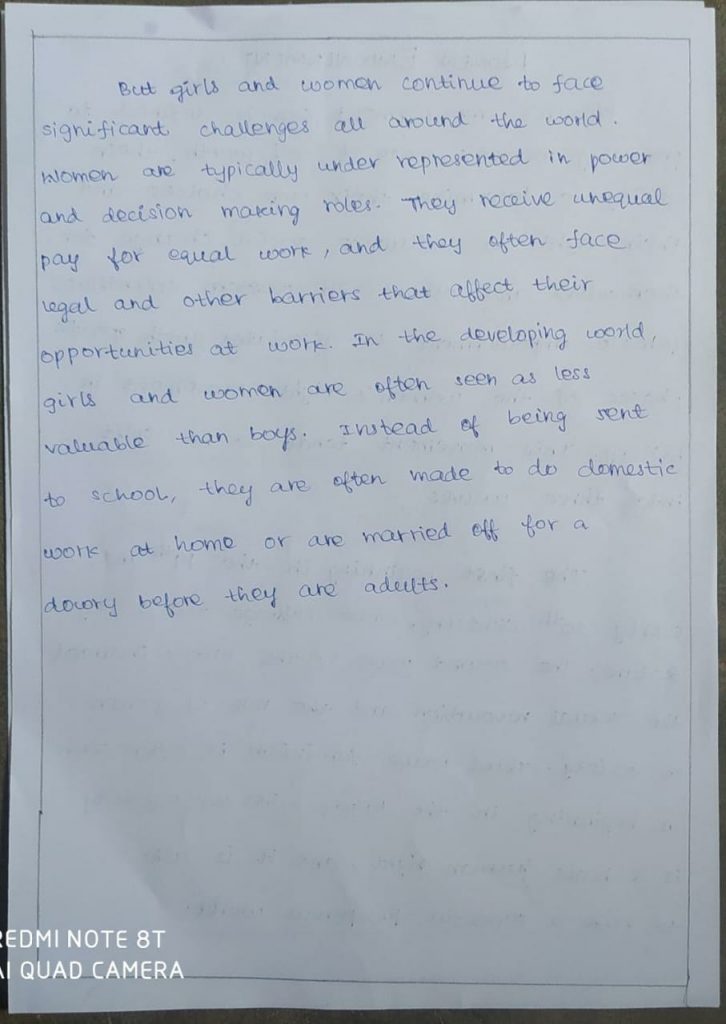 But girls and women continue to face
significant challenges all around the world.
Women are typically under represented in power
and decision making roles. They receive unequal
pay for equal work, and they often face
legal and other barriers that affect their
opportunities at work. In the developing world,
girls and women are often seen as less
valuable than boys. Instead of being sent
to school, they are often made to do domestic
work at home or are married off for a
dowry before they are adults.
REDMI NOTE 8T
AI QUAD CAMERA